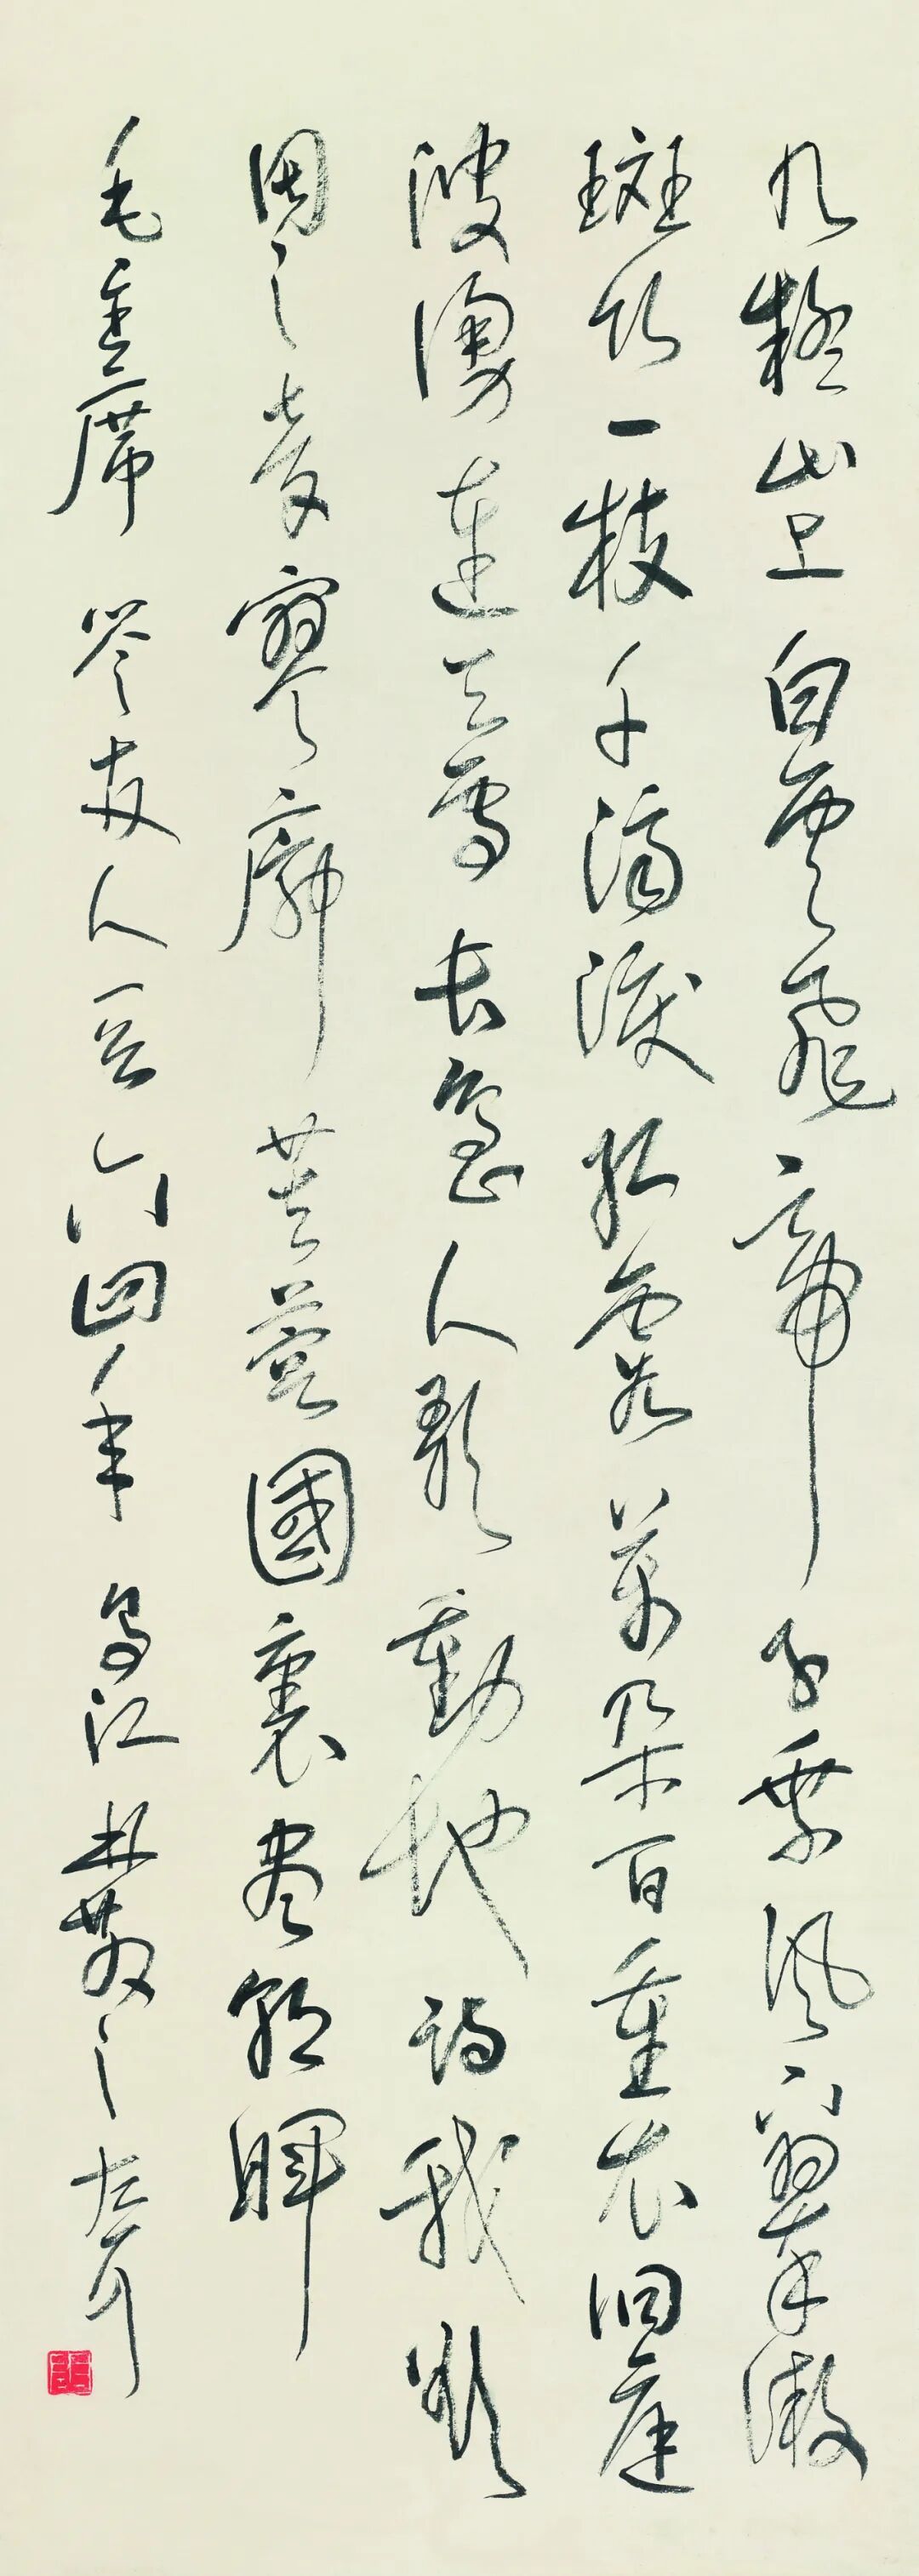 九嶷山上白雲飛帝子乘風下翠微
斑竹一枝千滴淚紅霞萬朵百重衣洞庭
波湧連天雪長島人歌動地詩我欲
因之夢寥廓芙蓉國裏盡朝暉
毛主席答友人一首六四年烏江林散之左耳